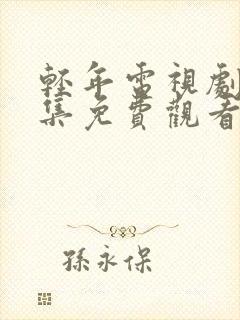 輕年電視劇
集免費觀看
孫永保